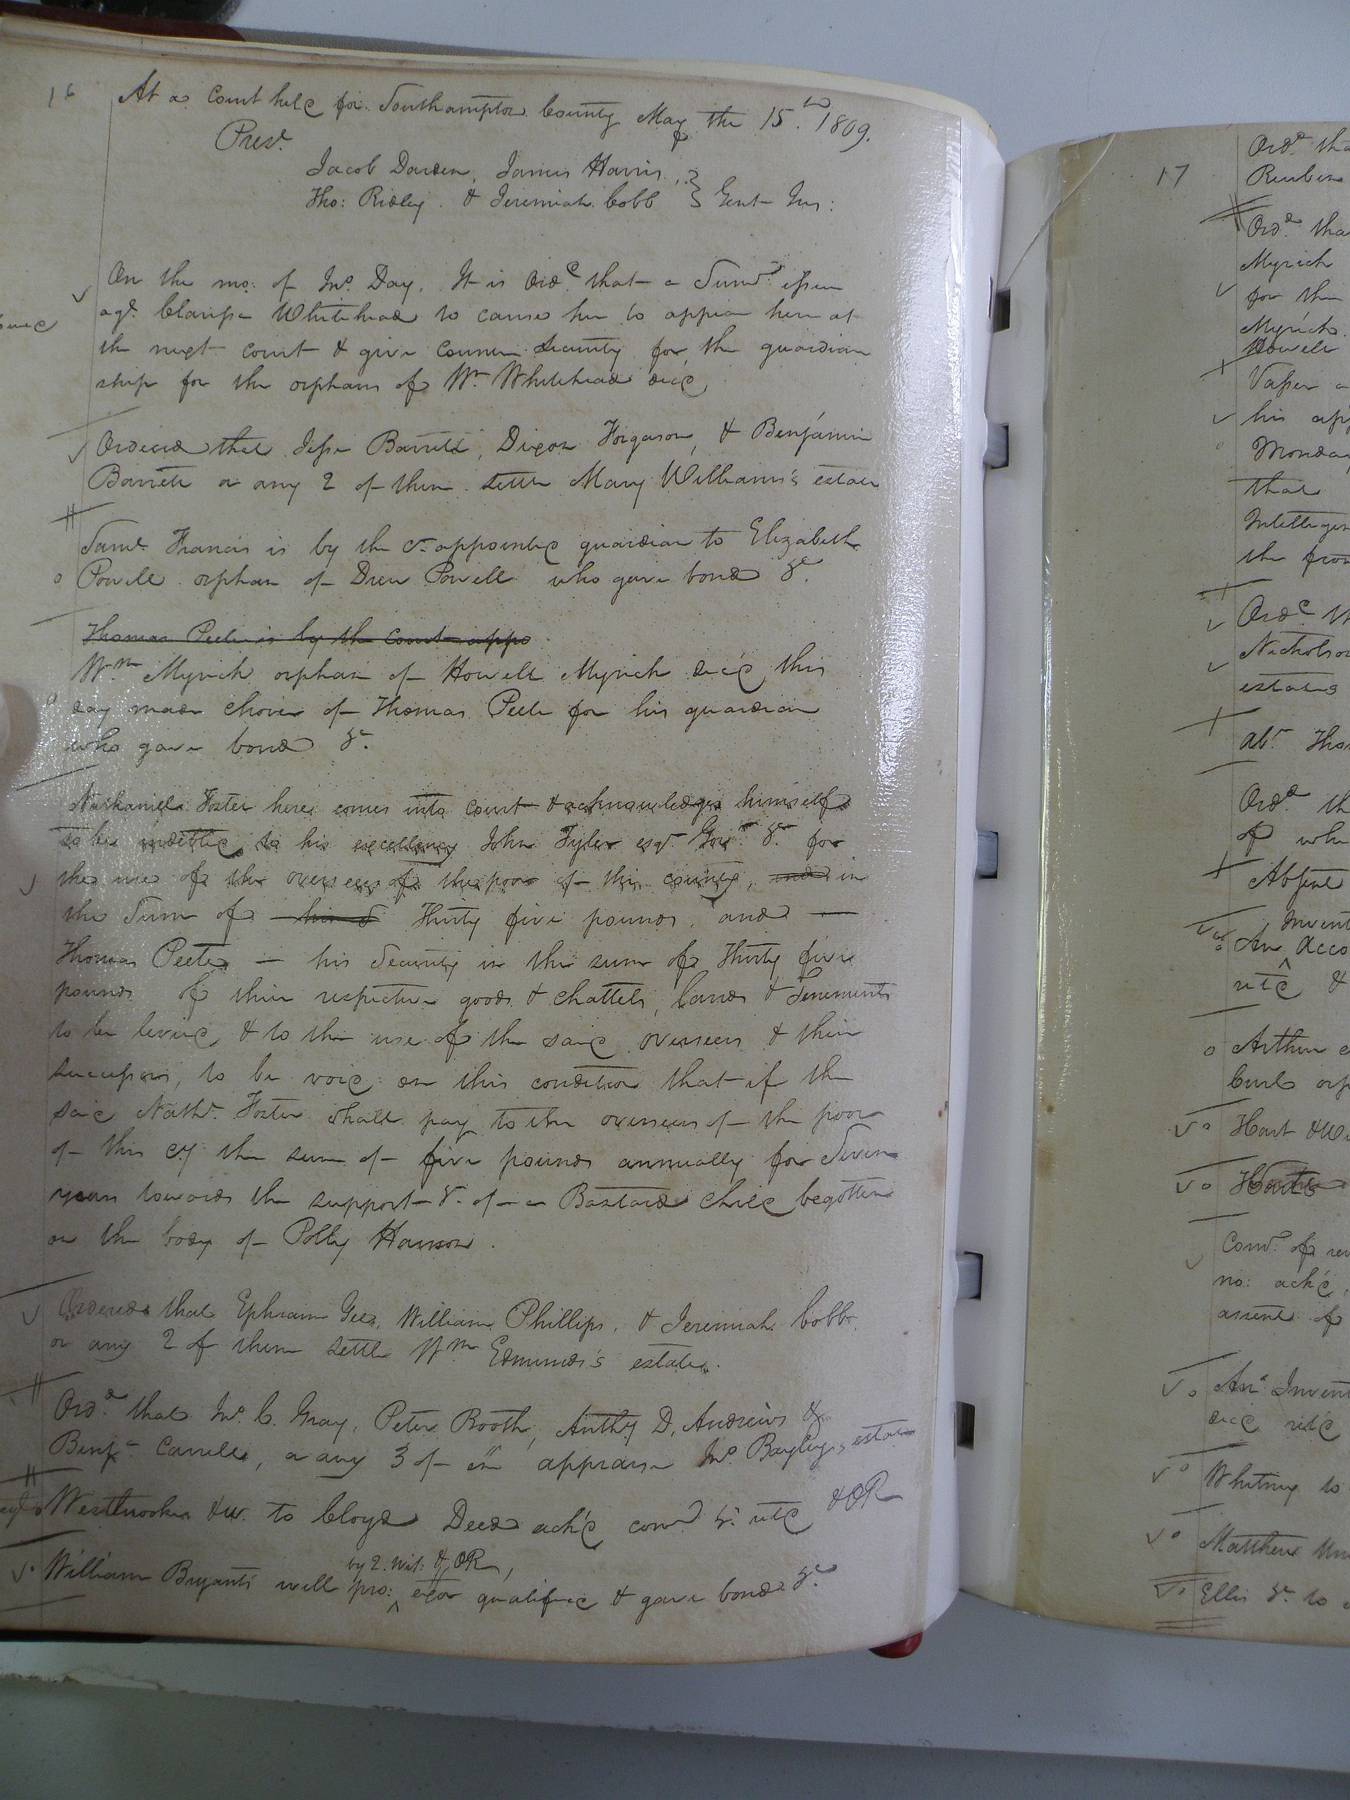 16
At a Court held for Southampton County May the 15.th 1809.
Prest.
Jacob Darden, James Harris,
Tho: Ridley & Jeremiah Cobb } Gent Jus:
On the mo: of Jno. Day. It is Ord.d that a Sum.s issue
agt. Clarissa Whitehead to cause her to appear here at
the next court & give counter security for the guardian
ship for the orphans of Wm Whitehead decd,
Ordered that Jesse Barrett, Dixon Forgason, & Benjamin
Barrett or any 2 of them settle Mary Williams's estate
Saml. Francis is by the Ct. appointed guardian to Elizabeth
Powell orphan of Drew Powell who gave bond &c.
Thomas Peete is by the Court appo
Wm. Myrick orphan of Howell Myrick decd, this
day made choice of Thomas Peete for his guardian
who gave bond &c.
Nathaniel Foster here comes into court & acknowledges himself
to be indebted to his excellency John Tyler esqr. Govr. &c. for
the use of the overseers of the poor of this county, and in
the Sum of his S Thirty five pounds, and —
Thomas Peete — his Security in the sum of Thirty five
pounds of their respective goods & chattels, lands & tenements
to be levied, & to the use of the said overseers & their
successors, to be void on this condition that if the
said Nathl. Foster shall pay to the overseers of the poor
of this cty the sum of five pounds annually for Seven
years towards the support &c. of a Bastard child begotten
on the body of Polly
Ordered that Ephraim Gee, William Phillips, & Jeremiah Cobb
or any 2 of them settle Wm Edmunds's estate.
Ord.d that Jno. C. Gray, Peter Booth, Anthy D. Andrews &
Benja Carrell, or any 3 of em appraise Jno Bayley's estate
Westbrooke &w. to Cloyd Deed ackd com.n &c. retd &OR
by 2. wit: & OR,
William Bryant's will pro: exor qualified & gave bond &c
17
Ord.d tha
Reuben
Ord.d tha
Myrick
for the
Myrick
Howell
Vasser a
his app
Monday
that
Intelligen
the fron
Ord.d th
Nicholson
estates
abt. Tho
Ord.d th
of wh
Absent
Invent
An Acco
retd &
Arthur
Curl orp
Hart &W
Com.n of re
no: ackd,
assent of
An Invent
decd retd
Whitney to
Matthew
Ellis &c. to